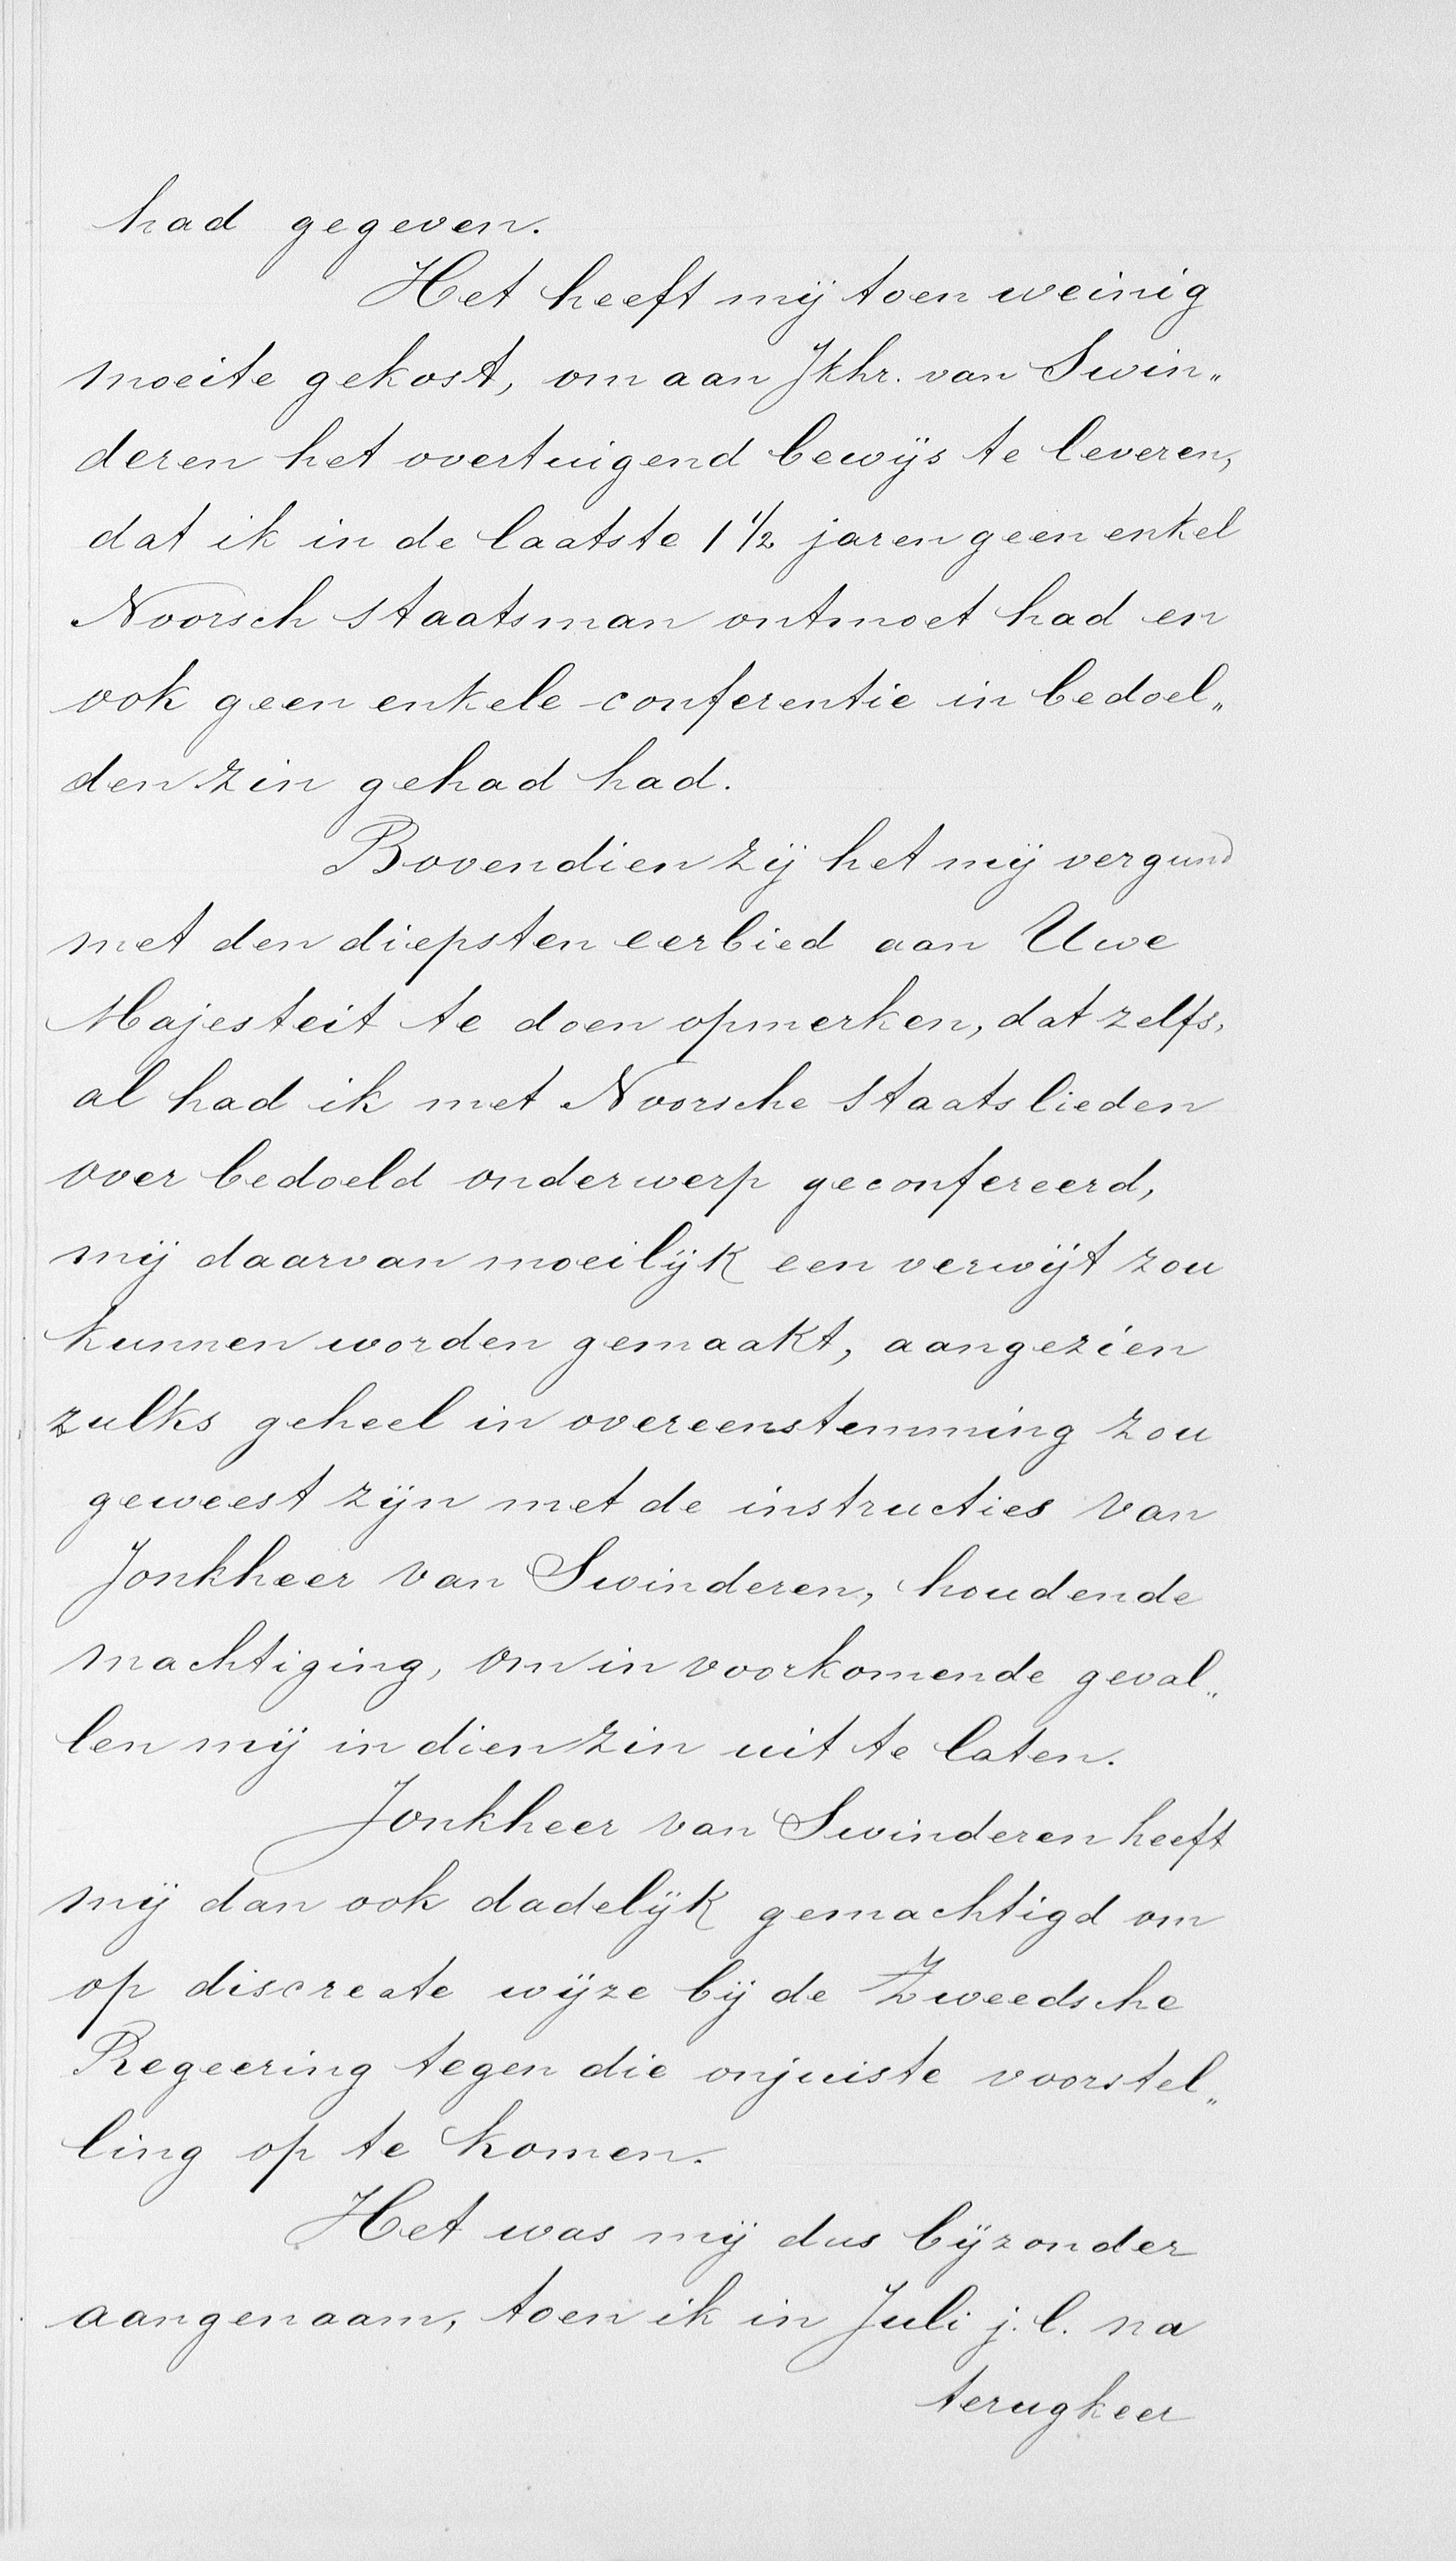 had gegeven.
Het heeft mij toen weinig
moeite gekost, om aan Jkhr. van Swin„
deren het overtuigend bewijs te leveren,
dat ik in de laatste 1 1/2 jaren geen enkel
Noorsch staatsman ontmoet had en
ook geen enkele conferentie in bedoel„
den zin gehad had.
Bovendien zij het mij vergund
met den diepsten eerbied aan Uwe
Majesteit te doen opmerken, dat zelfs,
al had ik met Noorsche staatslieden
over bedoeld onderwerp geconfereerd,
mij daarvan moeilijk een verwijt zou
kunnen worden gemaakt, aangezien
zulks geheel in overeenstemming zou
geweest zijn met de instructies van
Jonkheer van Swinderen, houdende
machtiging, om in voorkomende geval„
len mij in dien zin uit te laten.
Jonkheer van Swinderen heeft
mij dan ook dadelijk gemachtigd om
op discreete wijze bij de Zweedsche
Regeering tegen die onjuiste voorstel„
ling op te komen.
Het was mij dus bijzonder
aangenaam, toen ik in Juli j.l. na
terugkeer